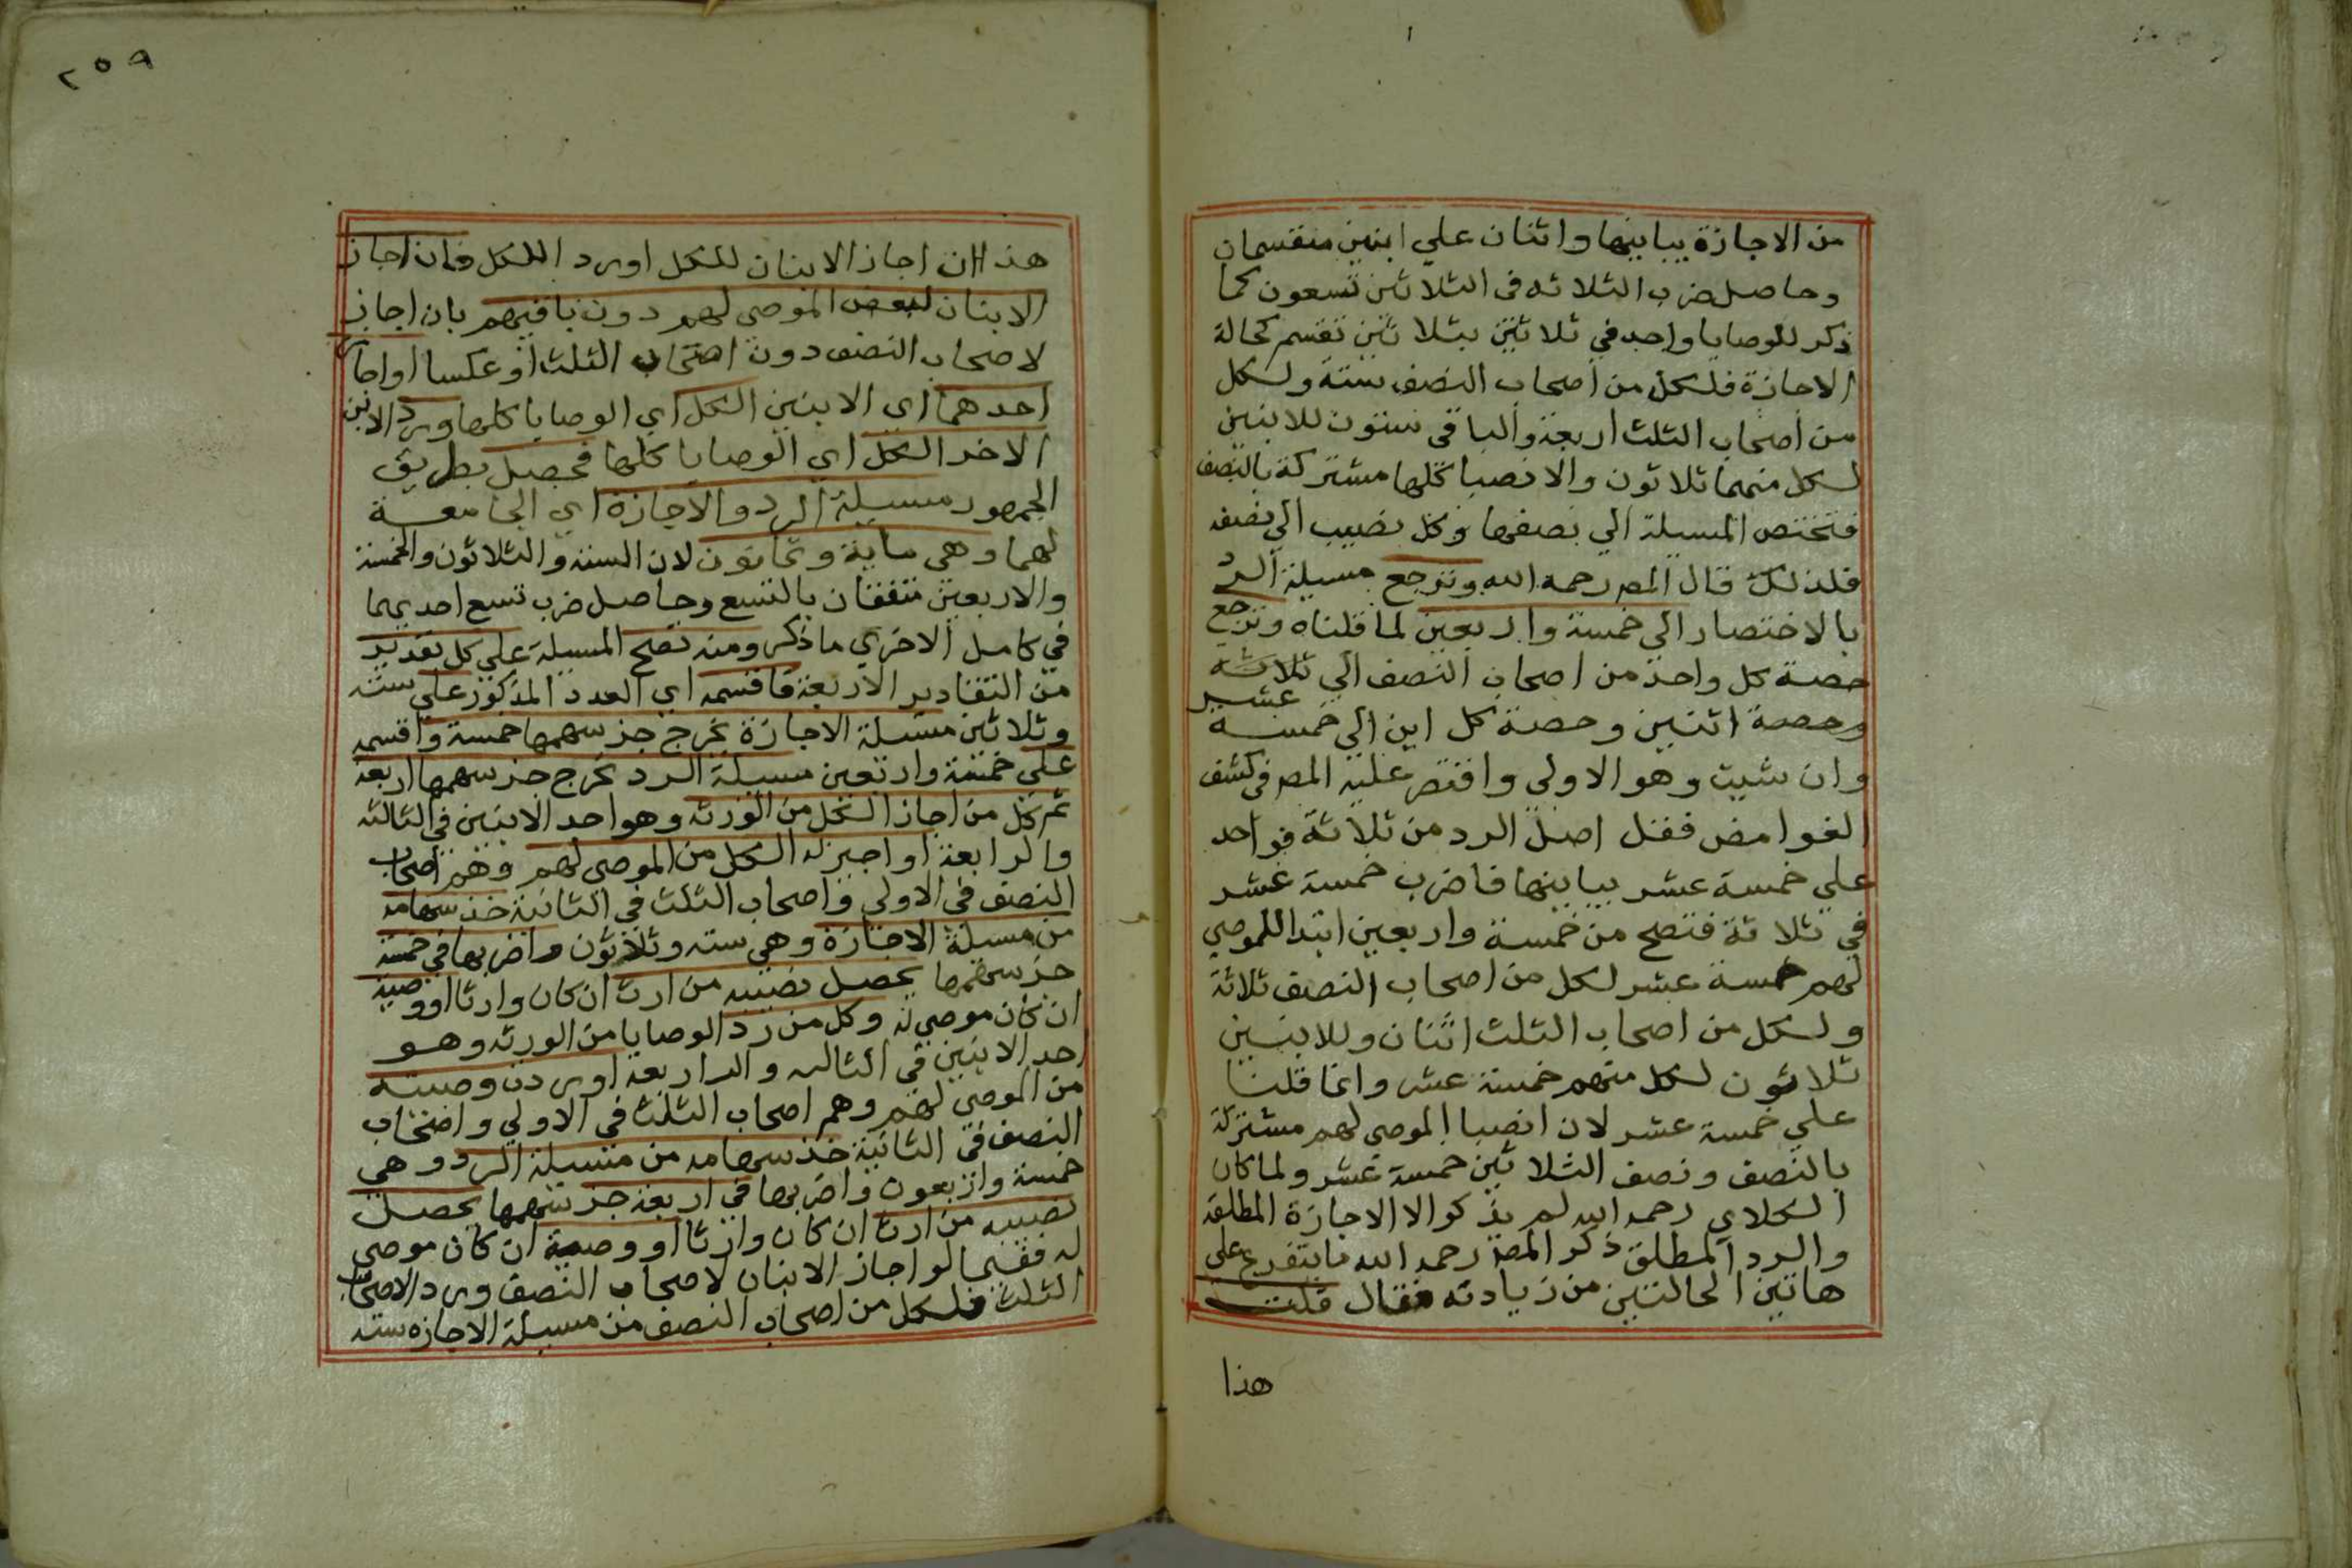 من الاجازة يباينها واثنان علي ابنين منقسمان
وحاصل ضرب الثلاثه في الثلاثين تسعون كما
ذكر للوصايا واحد في ثلاثين بثلاثين تقسم كحالة
الاجازة فلكل من اصحاب النصف ستة ولكل
من اصحاب الثلث اربعة والباقي ستون للابنين
لكل منهما ثلاثون والانصبا كلها مشتركة بالنصف
فتختص المسيلة الي نصفها وكل نصيب الي نصفه
فلذلك قال المص رحمه الله وترجع مسيلة الرد
بالاختصار الي خمسة واربعين لما قلناه وترجع
حصة كل واحد من اصحاب النصف الي ثلاثه
وحصة اثنين وحصة كل ابن الي خمسة
عشر
وان شيت وهو الاولي واقتصر عليه المص في كشف
الغوامض فقل اصل الرد من ثلاثة فواحد
علي خمسة عشر يباينها فاضرب خمسة عشر
في ثلاثة فتصح من خمسة واربعين ابتدا للموصي
لهم خمسة عشر لكل من اصحاب النصف ثلاثة
ولكل من اصحاب الثلث اثنان وللابنين
ثلاثون لكل منهم خمسة عشر وانما قلنا
علي خمسة عشر لان انصبا الموصي لهم مشتركة
بالنصف ونصف الثلاثين خمسة عشر ولما كان
الكلاي رحمه الله لم يذكر الا الاجازة المطلقة
والرد المطلق ذكر المص رحمه الله ما يتفرع علي
هاتين الحالتين من زيادته فقال قلت
هذا
٢٥٩
هذا ان اجاز الابنان للكل او رد اللكل فان اجاز
الابنان لبعض الموصي لهم دون باقيهم بان اجاز
لاصحاب النصف دون اصحاب الثلث او عكسا او اجاز
احدهما اي الابنين الكل اي الوصايا كلها ورد الابن
الاخر الكل اي الوصايا كلها فحصل بطريق
الجمهور مسيلة الرد والاجازة اي الجامعة
لهما وهي ماية وثمانون لان الستة والثلاثون والخمسة
والاربعين متفقان بالتسع وحاصل ضرب تسع احديهما
في كامل الاخري ما ذكر ومنه تصح المسيلة علي كل تقدير
من التقادير الاربعة فاقسمه اي العدد المذكور علي سته
وثلاثين مسيلة الاجازة يخرج جز سهمها خمسة واقسمه
علي خمسة واربعين مسيلة الرد يخرج جز سهمها اربعة
ثم كل من اجاز الكل من الورثه وهو احد الابنين في الثالثه
والرابعة او اجيز له الكل من الموصي لهم وهم اصحاب
النصف في الاولي واصحاب الثلث في الثانية خذ سهامه
من مسيلة الاجازة وهي سته وثلاثون واضربها في خمسة
جز سهمها يحصل نصيبه من ارث ان كان وارثا او وصية
ان كان موصي له وكل من رد الوصايا من الورثه وهو
احد الابنين في الثالثه والرابعة او ردت وصيته
من الموصي لهم وهم اصحاب الثلث في الاولي واصحاب
النصف في الثانية خذ سهامه من مسيلة الرد وهي
خمسة واربعون واضربها في اربعة جز سهمها يحصل
نصيبه من ارث ان كان وارثا او وصية ان كان موصي
له ففيما لو اجاز الابنان لاصحاب النصف ورد الاصحاب
الثلث فلكل من اصحاب النصف من مسيلة الاجازه سته